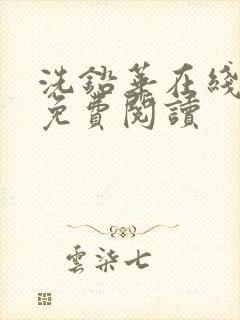 洗鉛華在綫
免費閱讀
雲柒七